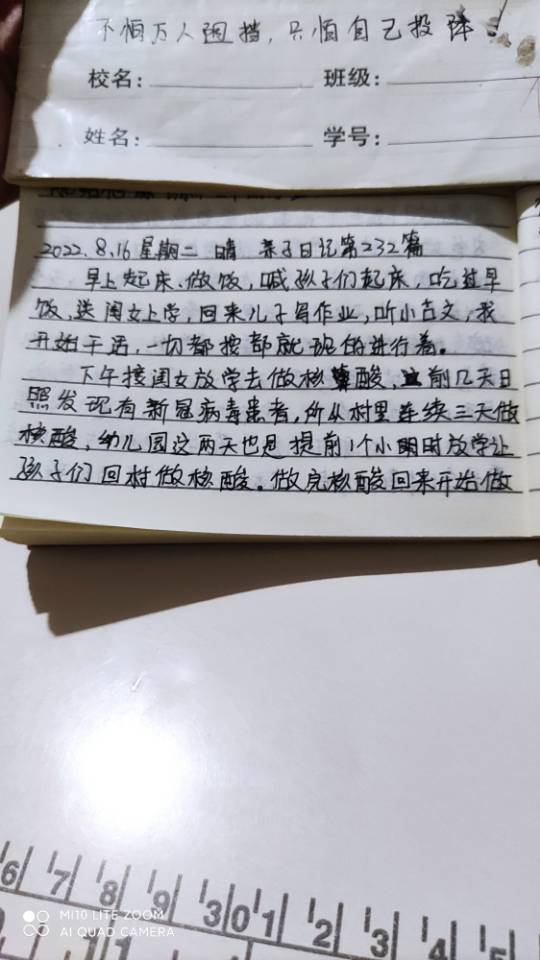 不怕万人阻挡，只怕自己投降！
校名： 班级：
姓名： 学号：
2022.8.16 星期二 晴 亲子日记第232篇
早上起床、做饭，喊孩子们起床，吃过早
饭，送闺女上学，回来儿子写作业，听小古文，我
开始干活，一切都按部就班的进行着。
下午接闺女放学去做核酸，前几天日
照发现有新冠病毒患者，所以村里连续三天做
核酸，幼儿园这两天也是提前1个小时放学让
孩子们回村做核酸。做完核酸回来开始做
16 17 18 19 30 1 12 13 14 15
MI10 LITE ZOOM
AI QUAD CAMERA